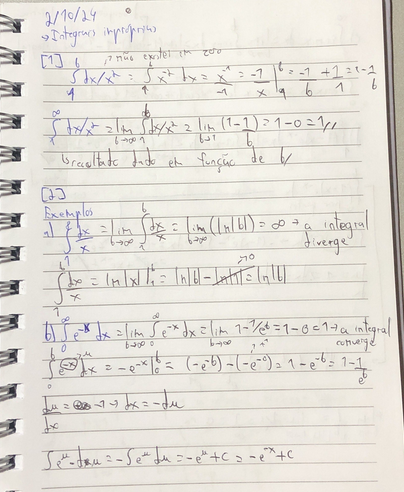 2/10/24
→ Integrais impróprias
[1] → não existe em zero
∫₁ᵇ dx/x² = ∫₁ᵇ x⁻² dx = x⁻¹/-1 = -1/x |₁ᵇ = -1/b + 1/1 = 1 - 1/b
∫₁^∞ dx/x² = lim b→∞ ∫₁ᵇ dx/x² = lim (1 - 1/b) = 1 - 0 = 1//
↳ resultado dado em função de b//
[2]
Exemplos
a) ∫₁^∞ dx/x = lim b→∞ ∫₁ᵇ dx/x = lim b→∞ (ln|b|) = ∞ → a integral
diverge
∫₁ᵇ dx/x = ln|x| |₁ᵇ = ln|b| - ln|1| →0 = ln|b|
b) ∫₀^∞ e⁻ˣ dx = lim b→∞ ∫₀ e⁻ˣ dx = lim b→∞ 1 - 1/eᵇ = 1 - 0 = 1 → a integral
converge
∫₀ᵇ e⁻ˣ dx = -e⁻ˣ |₀ᵇ = (-e⁻ᵇ) - (-e⁻⁰) = 1 - e⁻ᵇ = 1 - 1/eᵇ
du/dx = -1 → dx = -du
∫eᵘ - du = -∫eᵘ du = -eᵘ + c = -e⁻ˣ + c